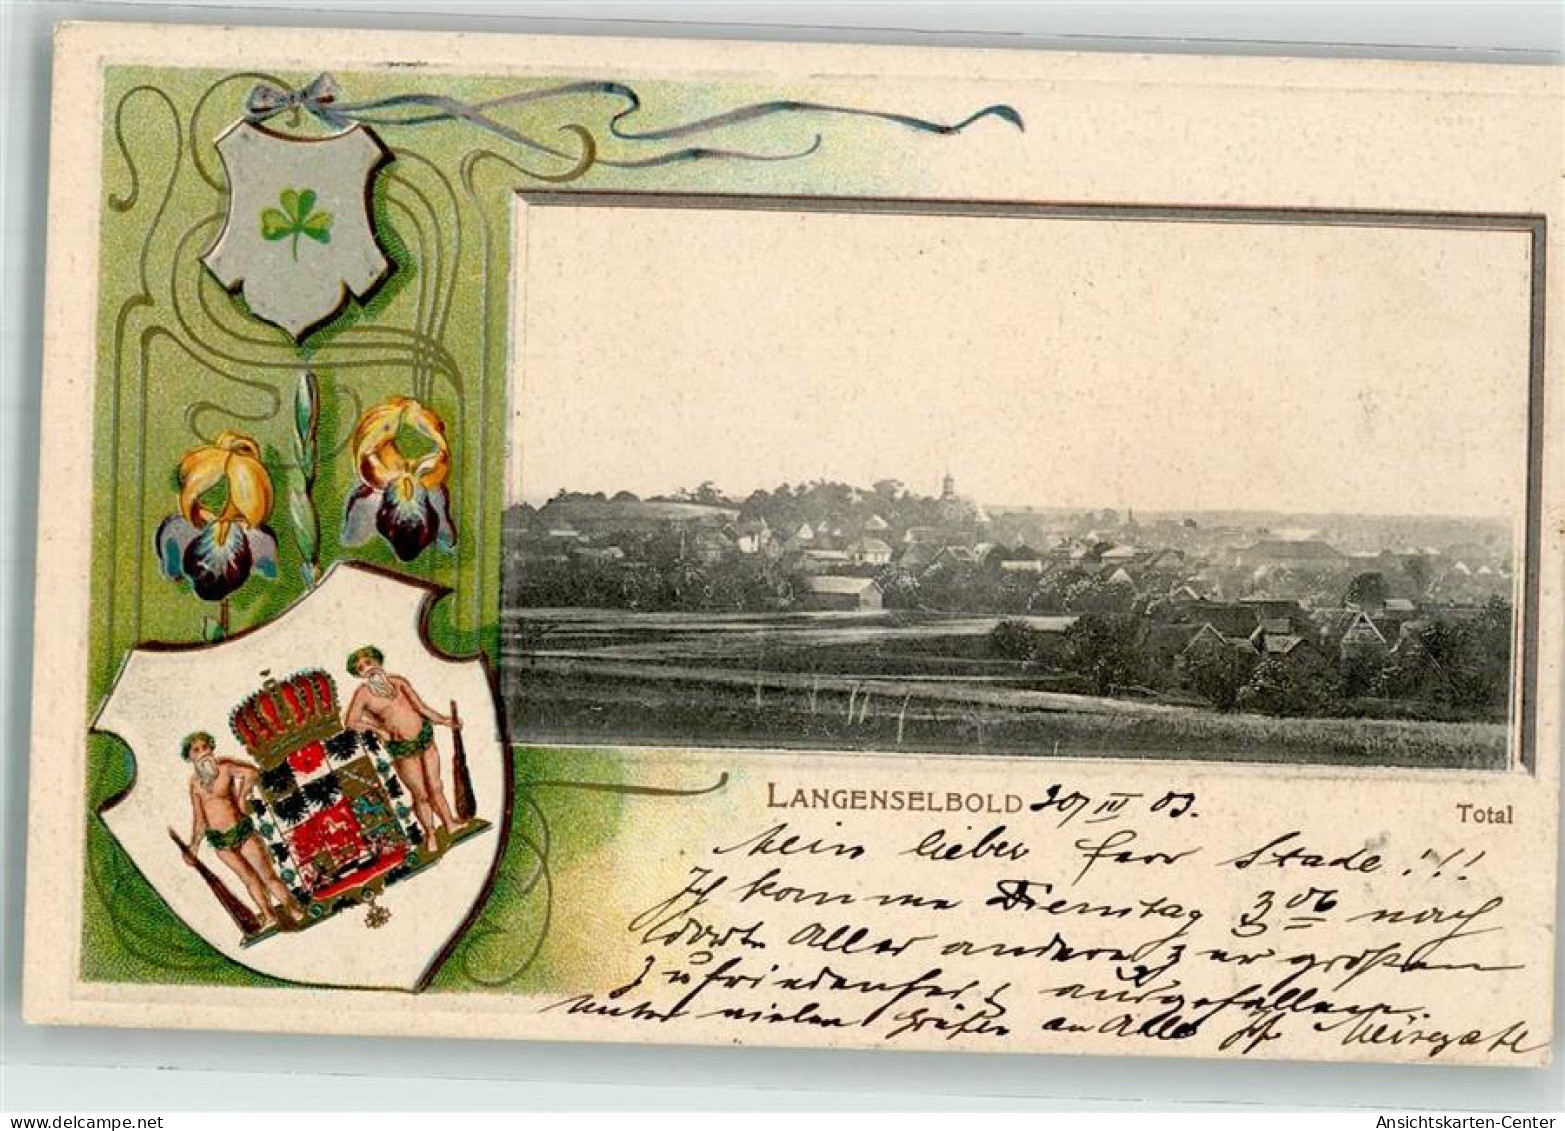 LANGENSELBOLD 30/IV 03.
Total
Mein lieber Herr Stade!!!
Ich komme Dienstag 3 06 nach
dort. Alles andere zur großen
Zufriedenheit ausgefallen.
Unter vielen Grüßen an Alle
delcampe.net
Ansichtskarten-Center